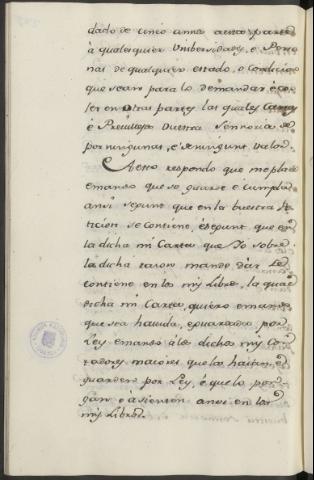 dado de cinco annos a esta parte
à qualesquier Universidades, e Perso
nas de qualquier estado, o Condicion
que sean para lo demandar, è co
ler en otras partes las quales Cartas
è Previllejos Vuestra Sennoria dè
por ningunas, è de ningunt valor.
A esto respondo que me place
e mando que se guarde e cumpla
ansi segunt que en la buestra Pe
ticion se contiene, è segunt que en
la dicha mi Carta que Yo sobre
la dicha razon mande dàr se
contiene en los mis Libros, la qual
dicha mi Carta, quiero e mando
que sea havida, e guardada por
Ley e mando à los dichos mis Con
tadores maiores que la haian, è
guarden por Ley, è que lo pon
gan è asienten ansi en los
mis Libros.